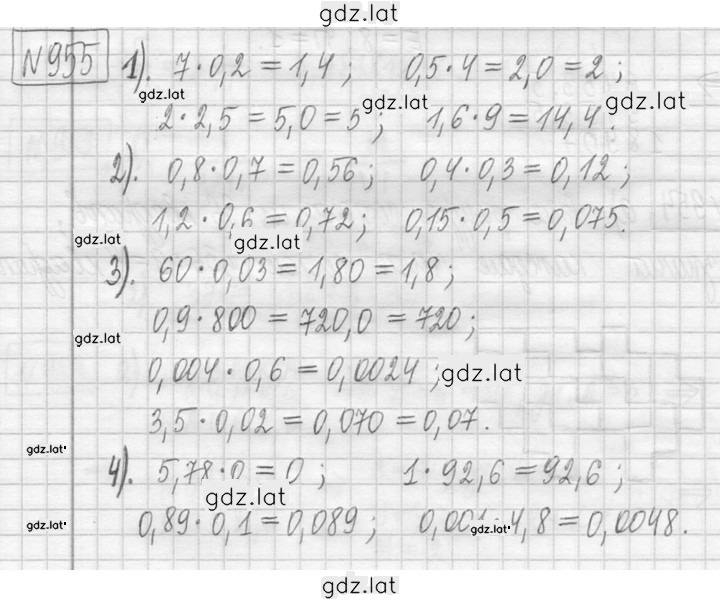 gdz.lat
№955 1). 7·0,2=1,4; 0,5·4=2,0=2;
gdz.lat gdz.lat gdz.lat
2·2,5=5,0=5; 1,6·9=14,4.
2). 0,8·0,7=0,56; 0,4·0,3=0,12;
1,2·0,6=0,72; 0,15·0,5=0,075.
gdz.lat gdz.lat
3). 60·0,03=1,80=1,8;
0,9·800=720,0=720;
gdz.lat
0,004·0,6=0,0024; gdz.lat
3,5·0,02=0,070=0,07.
gdz.lat
4). 5,78·0=0; 1·92,6=92,6;
gdz.lat
0,89·0,1=0,089; 0,001·4,8=0,0048.
gdz.lat gdz.lat
gdz.lat